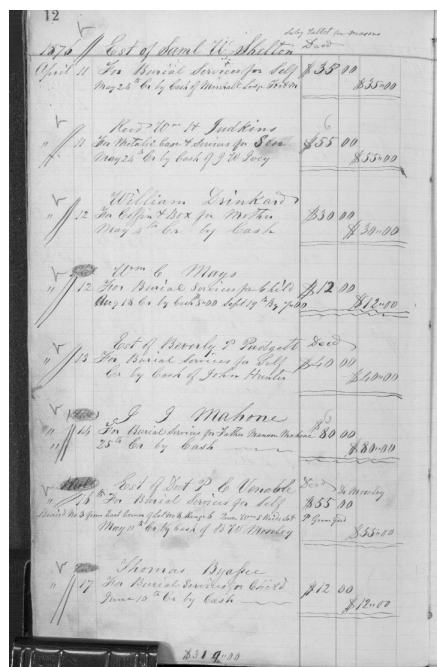 12
1870 Est of Saml W. Shelton Dead
April 11 For Burial Services for Self $35 00
May 24th Cr by Cash of $35=00
Wm H Judkins
" 11 For Metalic Case & Services for Son $55 00
May 24th Cr by Cash of J W $55=00
William Drinkard
" 12 For Coffin & Box for Mother $30 00
May 4th Cr by Cash $30=00
Wm C Mays
" 12 For Burial Services for Child $12 00
Aug 18 Cr by Cash 5=00 Sept 19th By 7=00 $12=00
Est of Beverly P Padgett Dead
" 13 For Burial Services for Self $40 00
Cr by Cash of John Hunter $40=00
J J Mahone
" 14 For Burial Services for Father Mahone $80 00
" 25th Cr by Cash $80=00
Est of P C Venable Dead
" For Burial Services for Self $55 00
Buried No 3 from East Corner of
May 11th Cr by Cash of B W Mosley $55=00
Thomas
" 17 For Burial Services for Child $12 00
June 10th Cr by Cash $12=00
$319=00